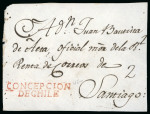 A Dn. Juan Bauptta
de Aeta, oficial mor. de la Rl.
Renta de Correos de
2
Santiago.
CONCEPCION
DE CHILE